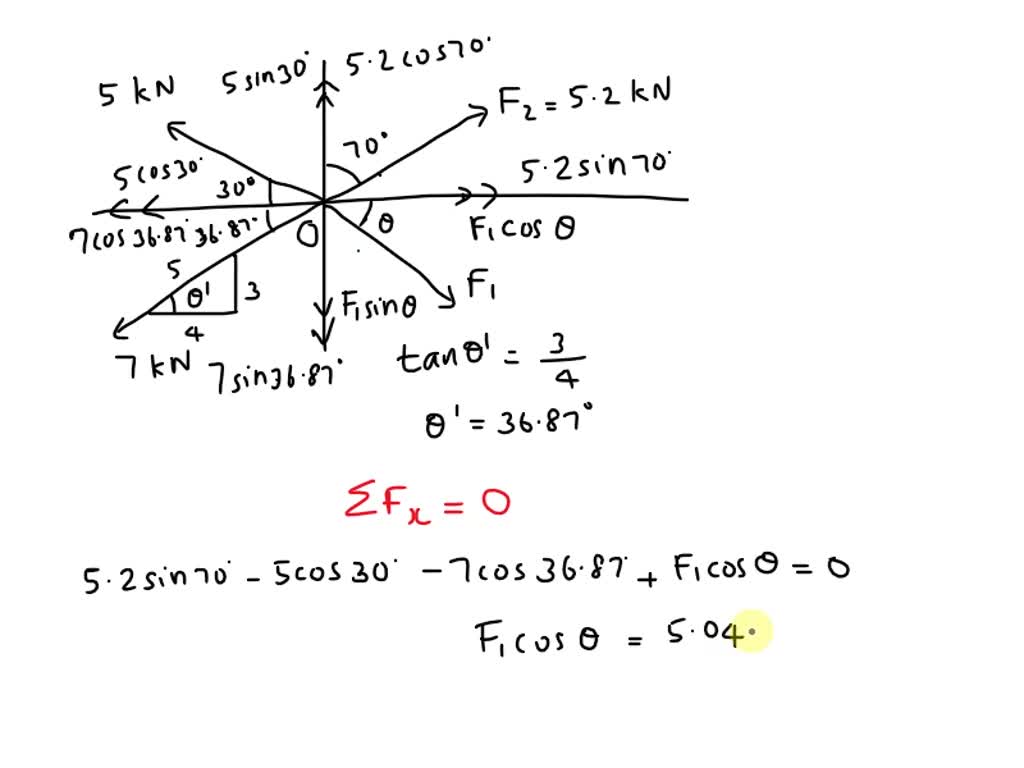 5 sin 30°
5.2 cos 70°
5 kN
F₂ = 5.2 kN
70°
5 cos 30°
30°
5.2 sin 70°
7 cos 36.87°
36.87°
O
θ
F₁ cos θ
5
θ'
3
4
F₁ sin θ
F₁
7 kN
7 sin 36.87°
tan θ' = 3/4
θ' = 36.87°
ΣFₓ = 0
5.2 sin 70° - 5 cos 30° - 7 cos 36.87° + F₁ cos θ = 0
F₁ cos θ = 5.04